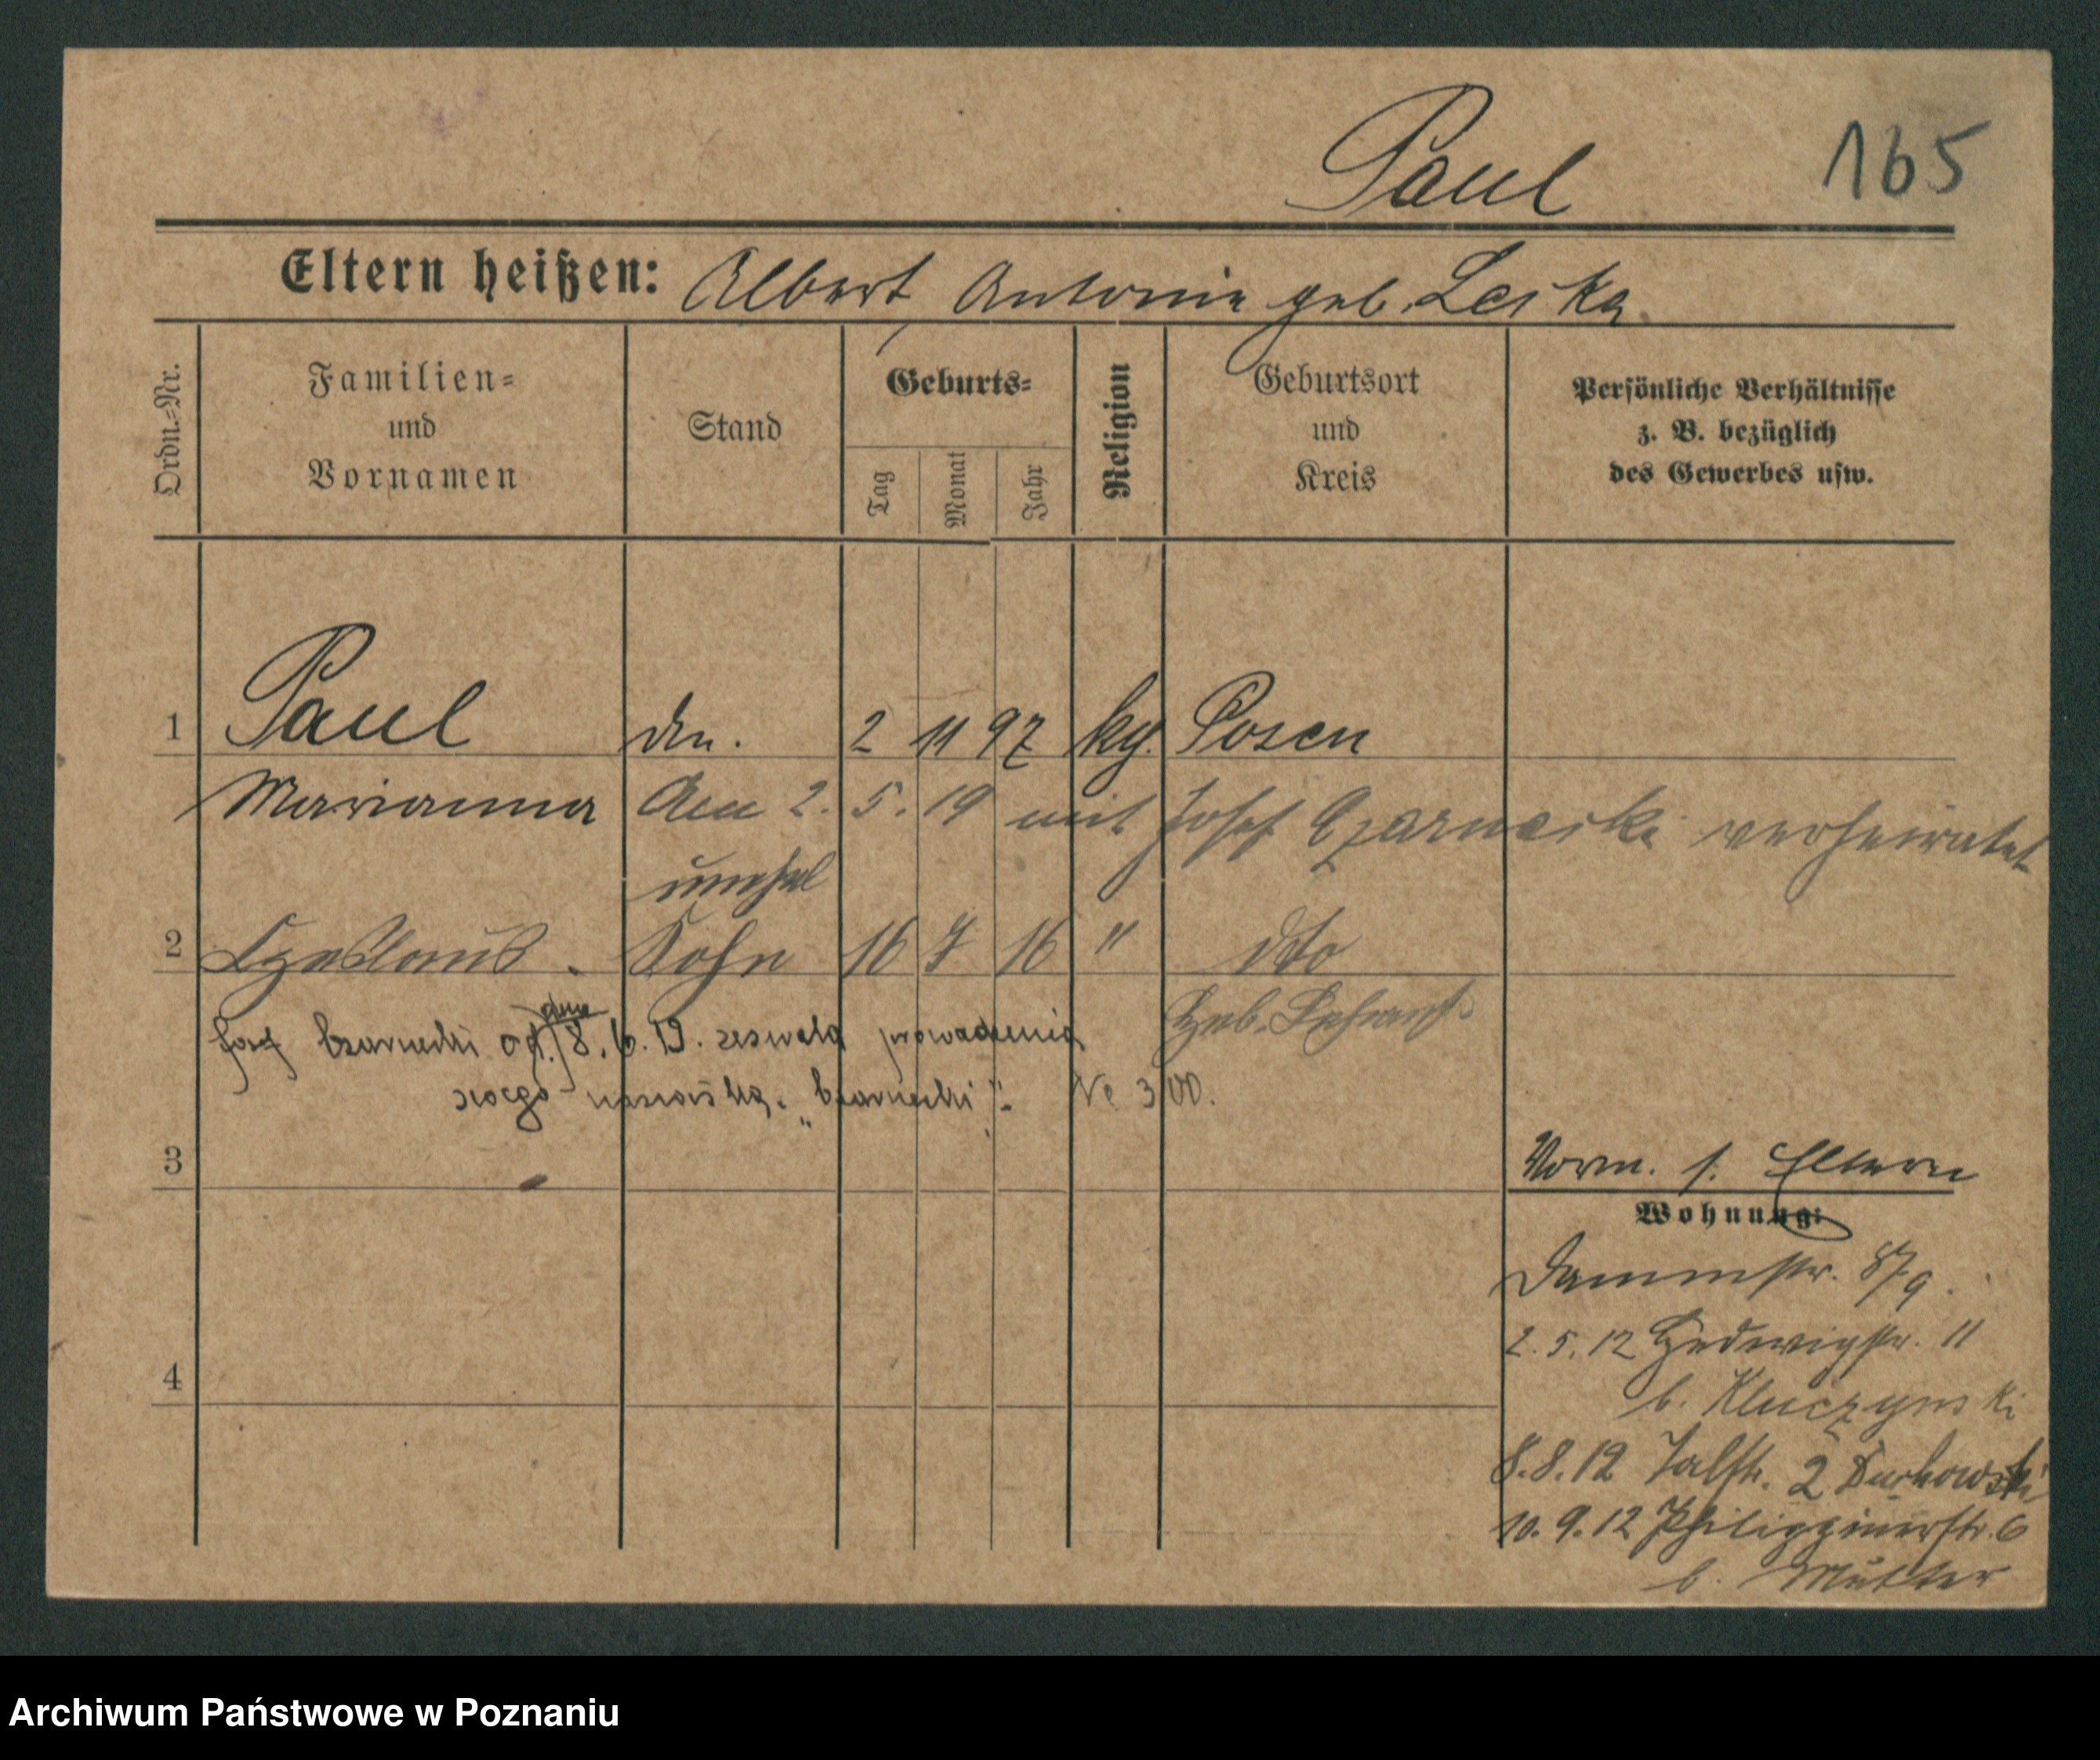 Paul 165
Eltern heißen: Albert Antonie geb. Leska
Ordn.-Nr.
Familien-
und
Vornamen
Stand
Geburts-
Tag
Monat
Jahr
Religion
Geburtsort
und
Kreis
Persönliche Verhältnisse
z. B. bezüglich
des Gewerbes usw.
1 Paul 2 11 97 Posen
Marianna Am 2. 5. 19 mit Josef Czarnecki verheiratet
unehel
2 Czeslaus. Sohn 16 7 16 " dto
Josef Czarnecki 8. 6. 19. zezwala prowadzenia
swego nazwiska. „Czarnecki". No 300.
3
Vorm. s. Eltern
Wohnung:
Dammstr. 8/9.
2. 5. 12 Hedwigstr. 11
b. Kluczynski
4
8. 8. 12 Talstr. 2
10. 9. 12 Philippinerstr. 6
b. Mutter
Archiwum Państwowe w Poznaniu